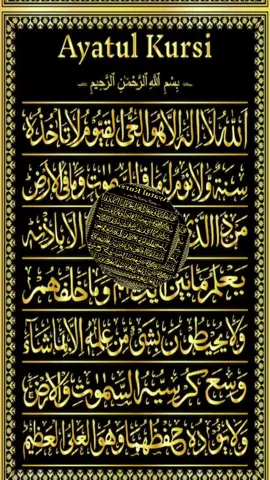 Ayatul Kursi
بِسْمِ ٱللَّهِ ٱلرَّحْمَٰنِ ٱلرَّحِيمِ
الله لا اله الا هو الحي القيوم لا تاخذه
سنة ولا نوم له ما في السموت وما في الارض
من ذا الا باذنه
يعلم ما بين وما خلفهم
ولا يحيطون بشئ من علمه الا بما شاء
وسع كرسيه السموت والارض
ولا يؤده حفظهما وهو العلي العظيم